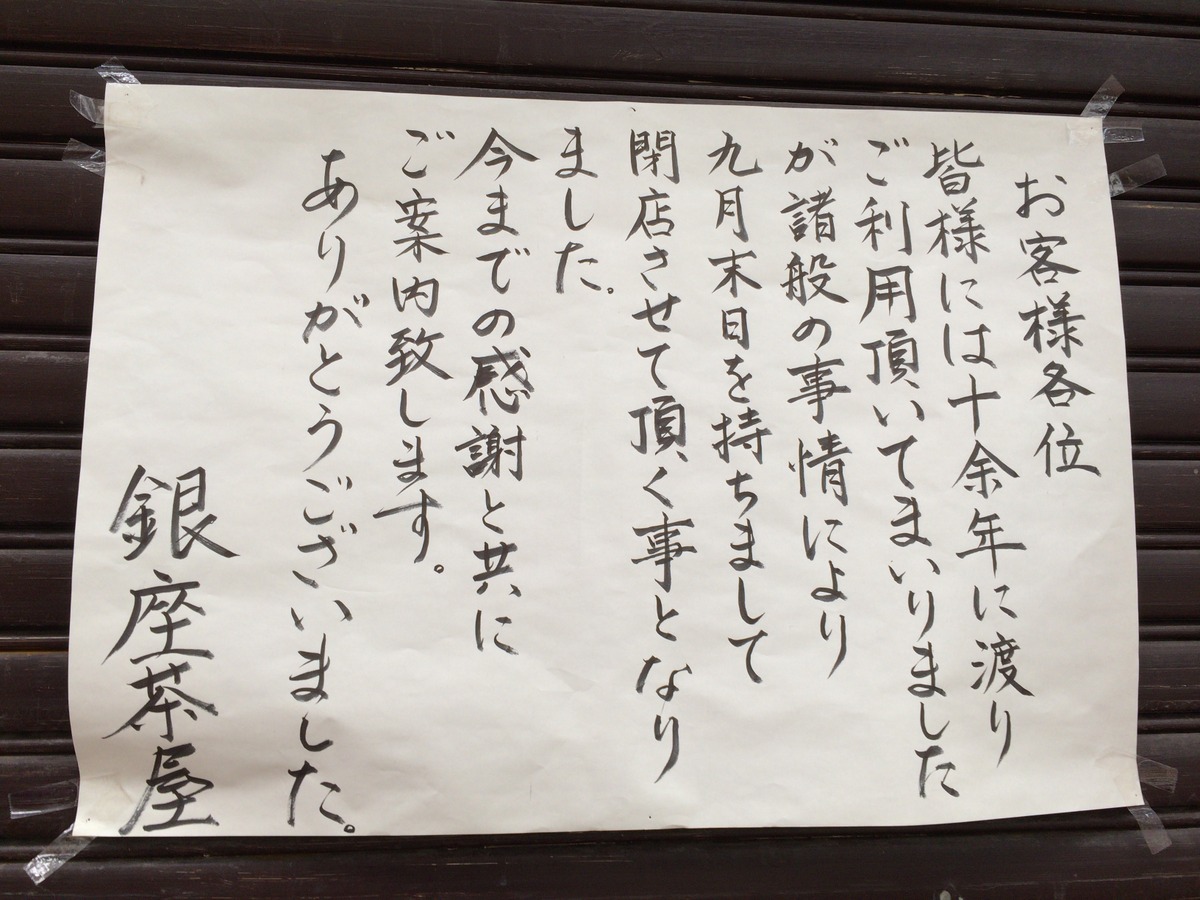 お客様各位
皆様には十余年に渡り
ご利用頂いてまいりました
が諸般の事情により
九月末日を持ちまして
閉店させて頂く事となり
ました。
今までの感謝と共に
ご案内致します。
ありがとうございました。
銀座茶屋